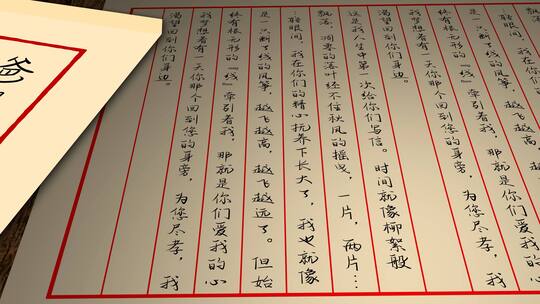 是一只断了线的风筝，越飞越高，越飞越
终有根无形的『线』牵引着我，那就是你们爱我的心
我梦想着有一天你那个回到您的身旁，为您尽孝，我
渴望回到你们身边。
是我人生中第一次给你们写信。时间就像柳絮般
飘落，凋零的落叶经不住秋风的摇曳，一片，两片…
眨眼间，我在你们的精心抚养下长大了，我也就像
是一只断了线的风筝，越飞越高，越飞越远了。但始
终有根无形的『线』牵引着我，那就是你们爱我的心
我梦想着有一天你那个回到您的身旁，为您尽孝，我
渴望回到你们身边。
爸